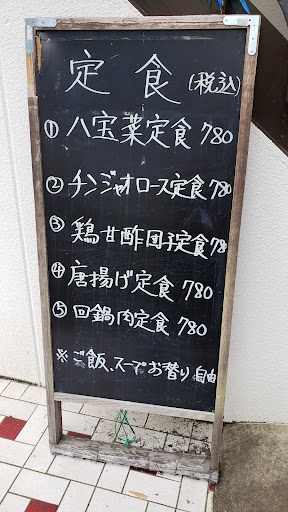 定食(税込)
① 八宝菜定食 780
② チンジャオロース定食 780
③ 鶏甘酢団子定食 780
④ 唐揚げ定食 780
⑤ 回鍋肉定食 780
※ご飯、スープお替り自由